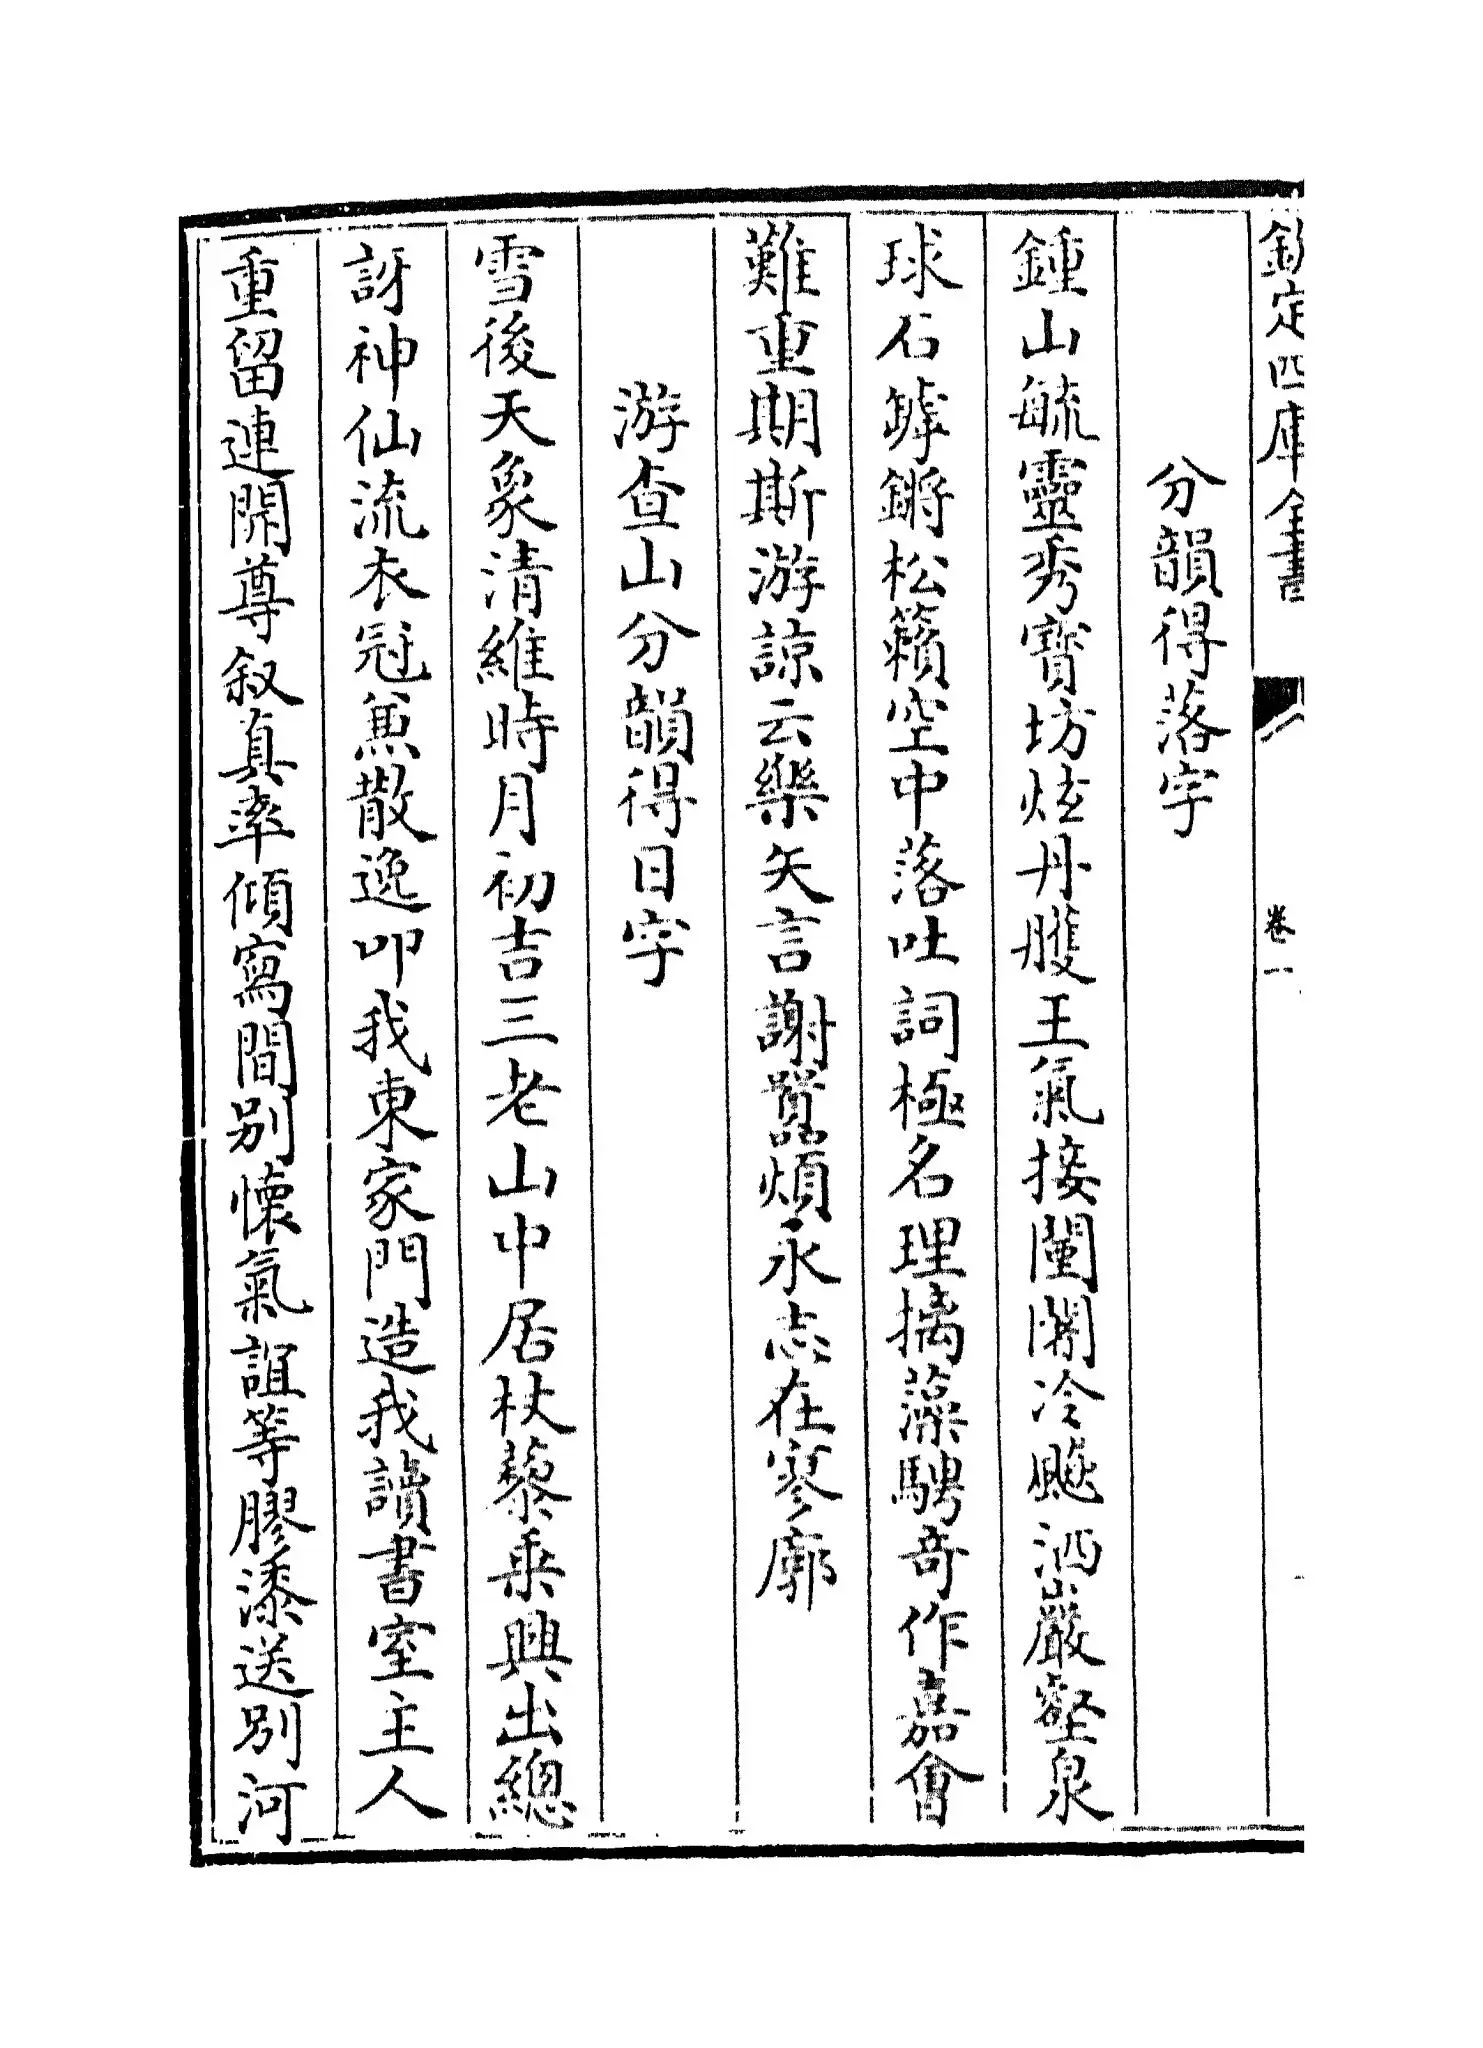 欽定四庫全書
卷一
分韻得落字
鍾山毓靈秀寶坊炫丹雘王氣接閶闔冷飈洒巖壑泉
球石罅鏘松籟空中落吐詞極名理摛藻騁奇作嘉會
難重期斯游諒云樂矢言謝囂煩永志在寥廓
游查山分韻得日字
雪後天象清維時月初吉三老山中居杖藜乘興出總
訝神仙流衣冠兼散逸叩我東家門造我讀書室主人
重留連開尊叙真率傾寫間别懷氣誼等膠漆送别河